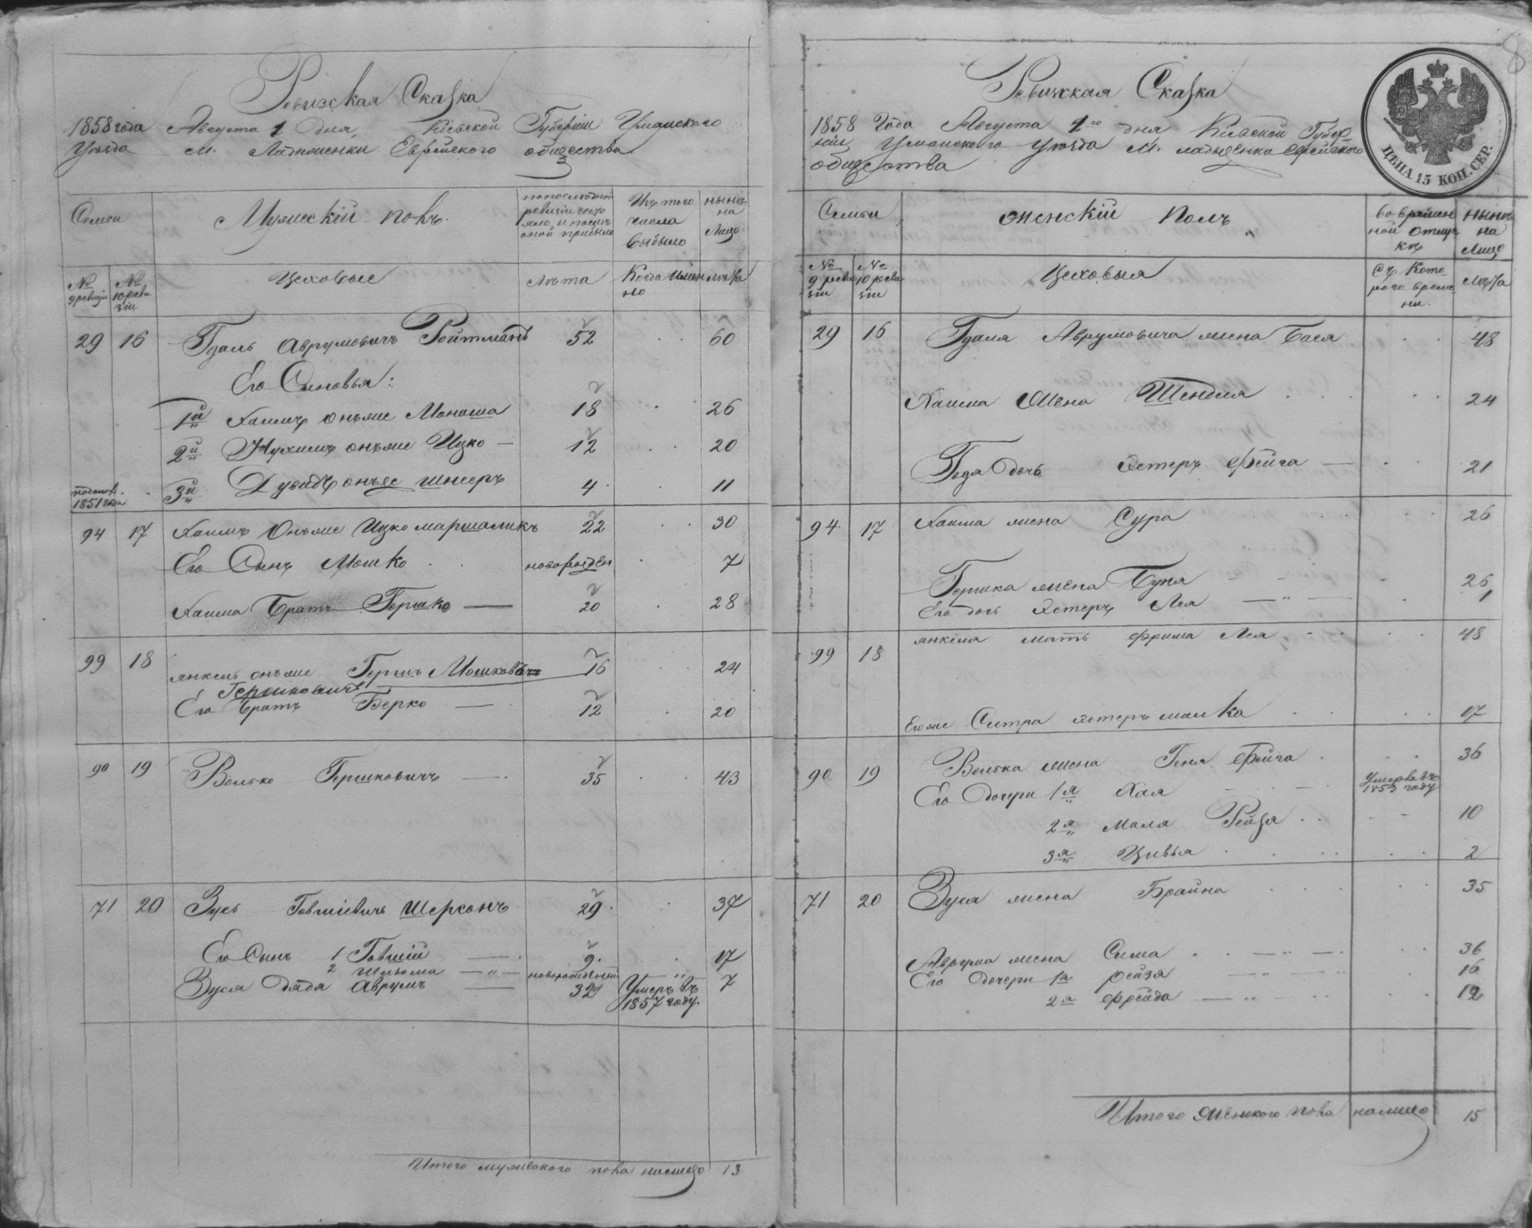 Ревизская Сказка
1858 года Августа 1 дня Киевской Губернии Уманского
Уезда м. Ладыженки Еврейского общества
Семьи
Мужескій полъ
Изъ того числа выбыло
ныне на лицо
№ 9 ревизіи
№ 10 ревизіи
Цеховые
Лѣта
Когда именно
Лѣта
29 16 Гдаль Аврумовичъ Ройтманъ 52 60
Его Сыновья:
1й Хаимъ онъже Монаша 18 26
2й Нухимъ онъже Ицко 12 20
1851 года 3й Дувидъ онъже Шнееръ 4 11
94 17 Хаимъ Онъже Ицко Маршаликъ 22 30
Его Сынъ Мошко новорожден 7
Хаима Братъ Гершко 20 28
99 18 Янкель онъже Гершъ Мошковъ 16 24
Гершковичъ
Его Братъ Берко 12 20
90 19 Волько Гершковичъ 35 43
71 20 Зусь Говшіевичъ Шерконъ 29 37
Его Сынъ 1 Говшій 9 17
2 Шльома новорожденный 7
Зуся дядя Аврумъ 32 Умеръ въ 1857 году
Итого мужескаго пола налицо 13
8
Ревизская Сказка
1858 Года Августа 1го дня Киевской Губер
ніи Уманского Уезда м. Ладыженка Еврейского
общества
ЦѢНА 15 КОП. СЕР.
Семьи
Женскій Полъ
во временной отлучкѣ
ныне на лицо
№ 9 ревизіи
№ 10 ревизіи
Цеховыя
Съ Которого времени
Лѣта
29 16 Гдаля Аврумовича жена Бася 48
Хаима Жена Шендля 24
Гдаля дочь Эстеръ Фейга 21
94 17 Хаима жена Сура 26
Гершка жена Буня 26
Его дочь Эстеръ Лея 1
99 18 Янкеля мать Фрима Лея 48
Егоже Сестра Эстеръ Малка 17
90 19 Волька жена Геня Фейга 36
Его Дочери 1я Хая Умерла въ 1853 году
2я Маля Рейзя 10
3я Цивья 2
71 20 Зуся жена Брайна 35
Аврума жена Сима 36
Его Дочери 1я Рейзя 16
2я Фрейда 12
Итого Женского пола налицо 15